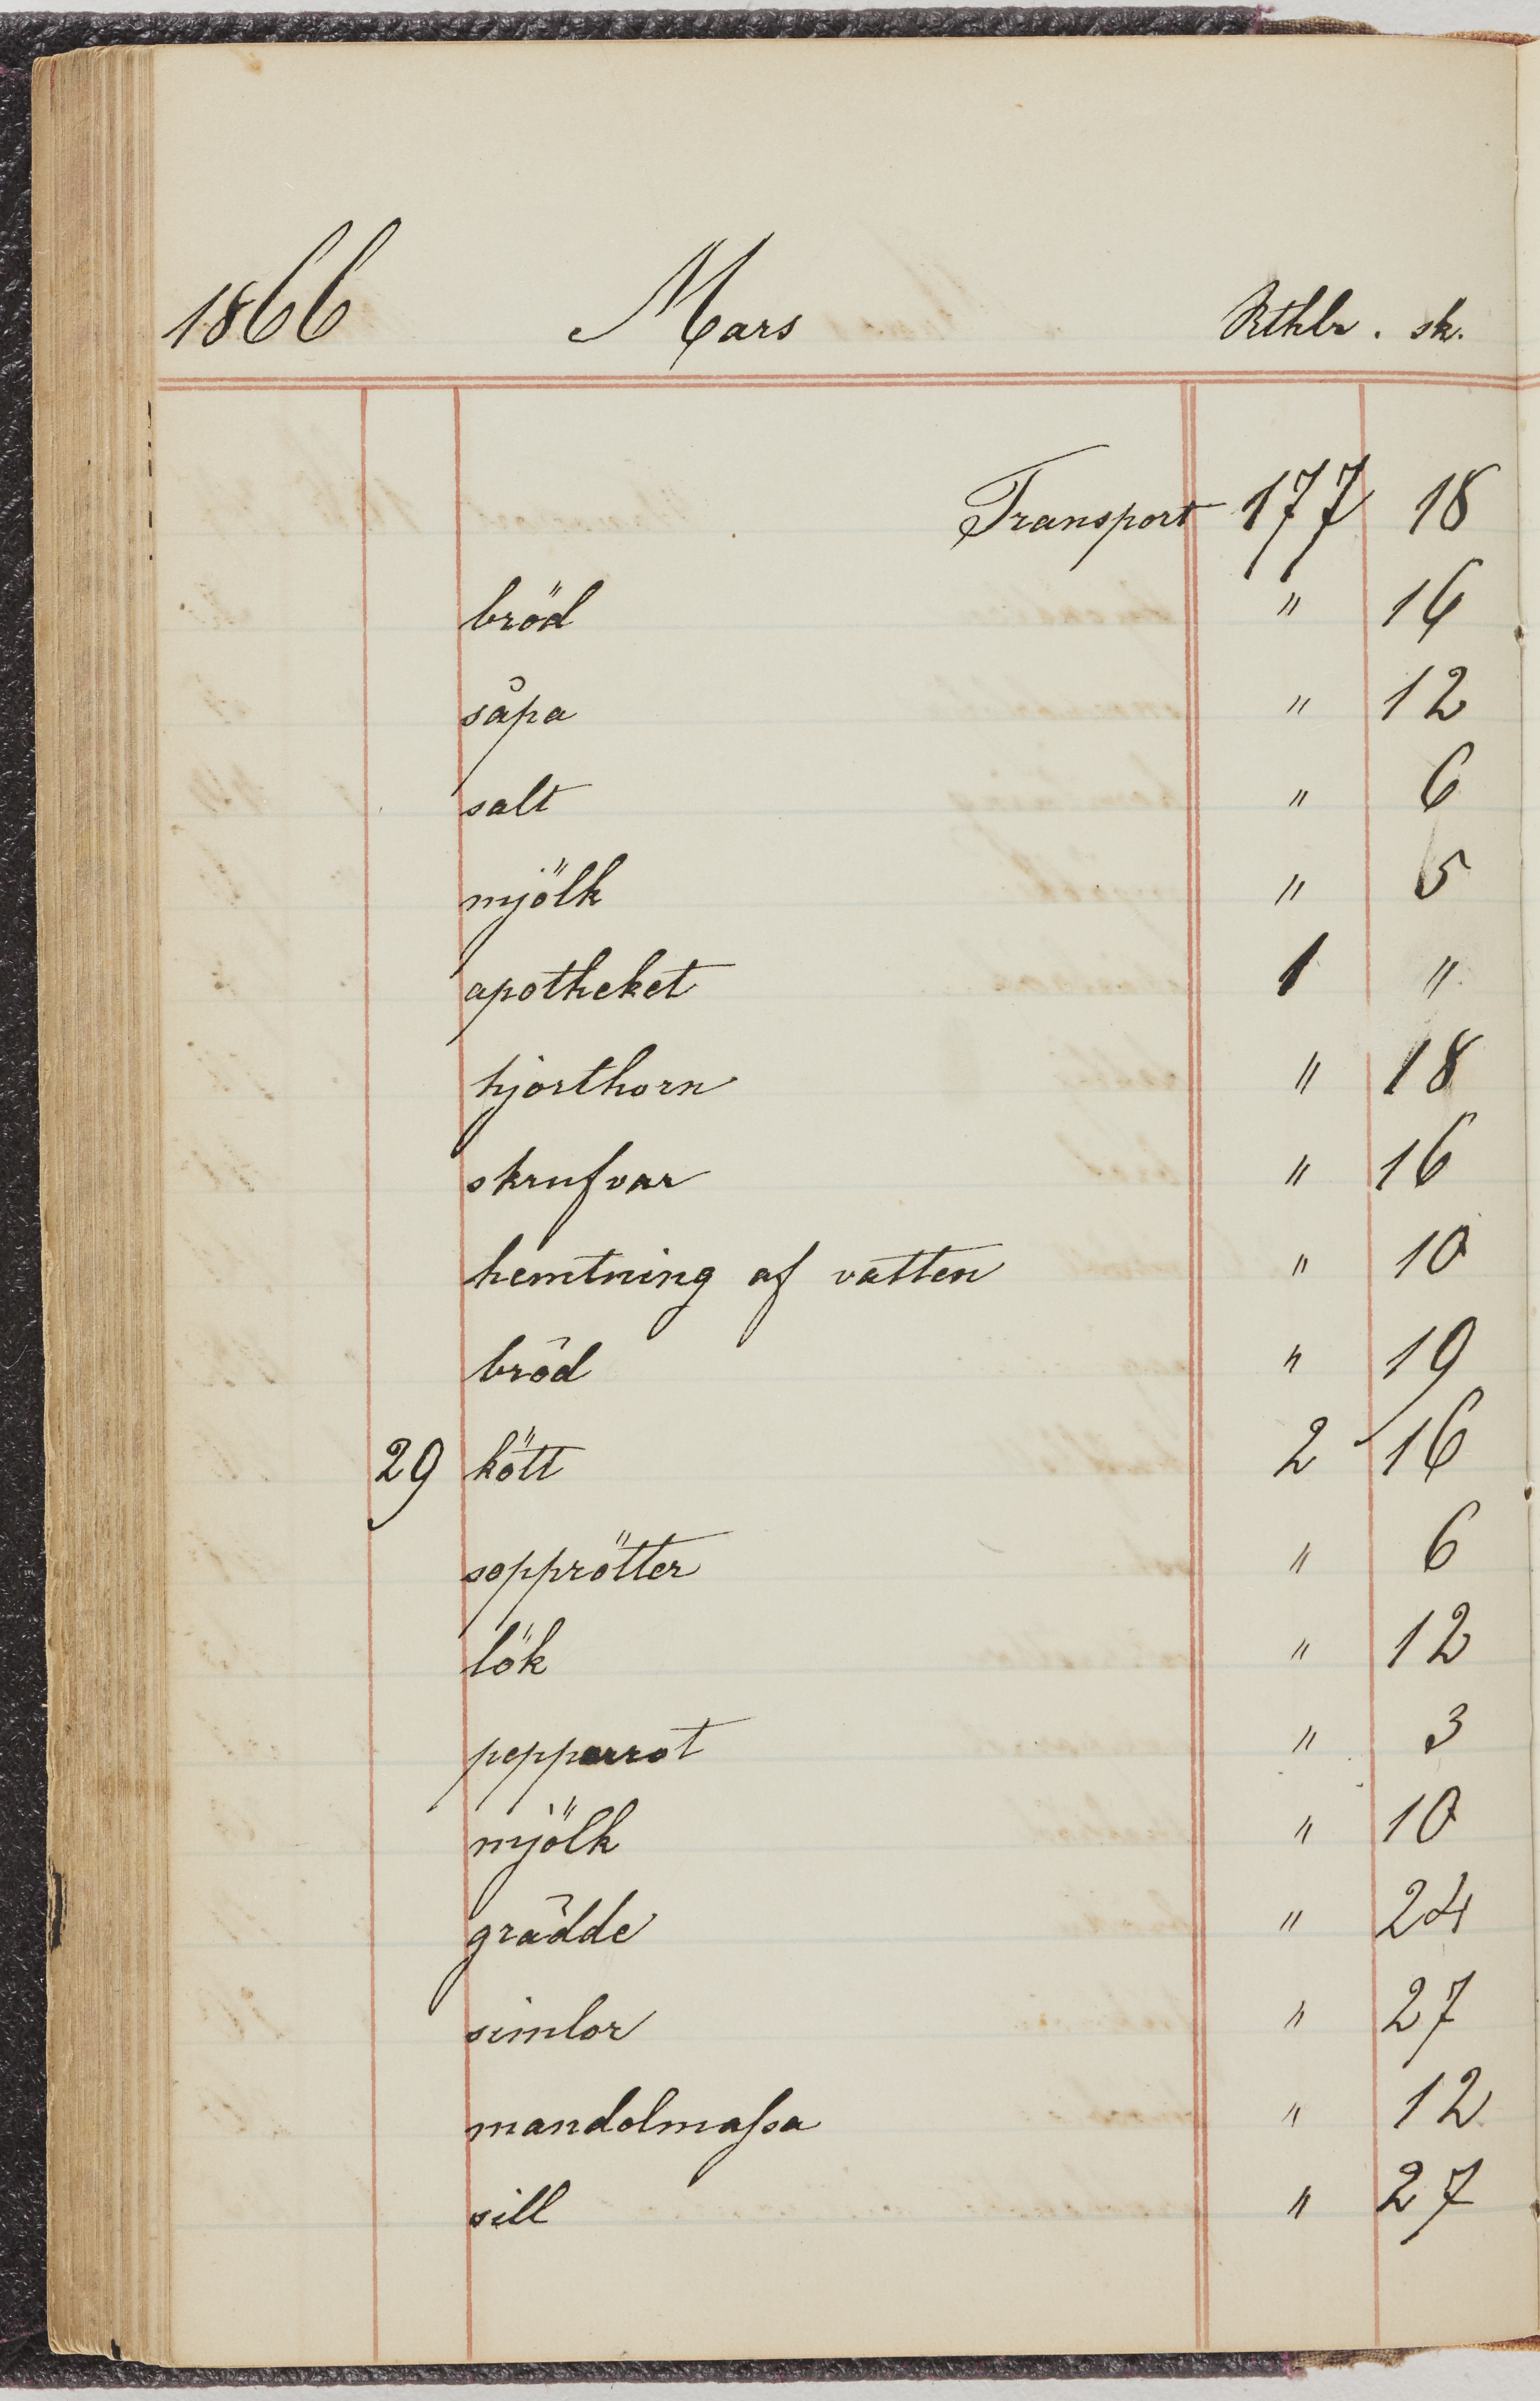 1866 Mars Rthlr. sk.
Transport 177 18
bröd " 16
såpa " 12
salt " 6
mjölk " 5
apotheket 1 "
hjorthorn " 18
skrufvar " 16
hemtning af vatten " 10
bröd " 19
29 kött 2 16
sopprötter " 6
lök " 12
pepparrot " 3
mjölk " 10
grädde " 24
simlor " 27
mandolmassa " 12
sill " 27